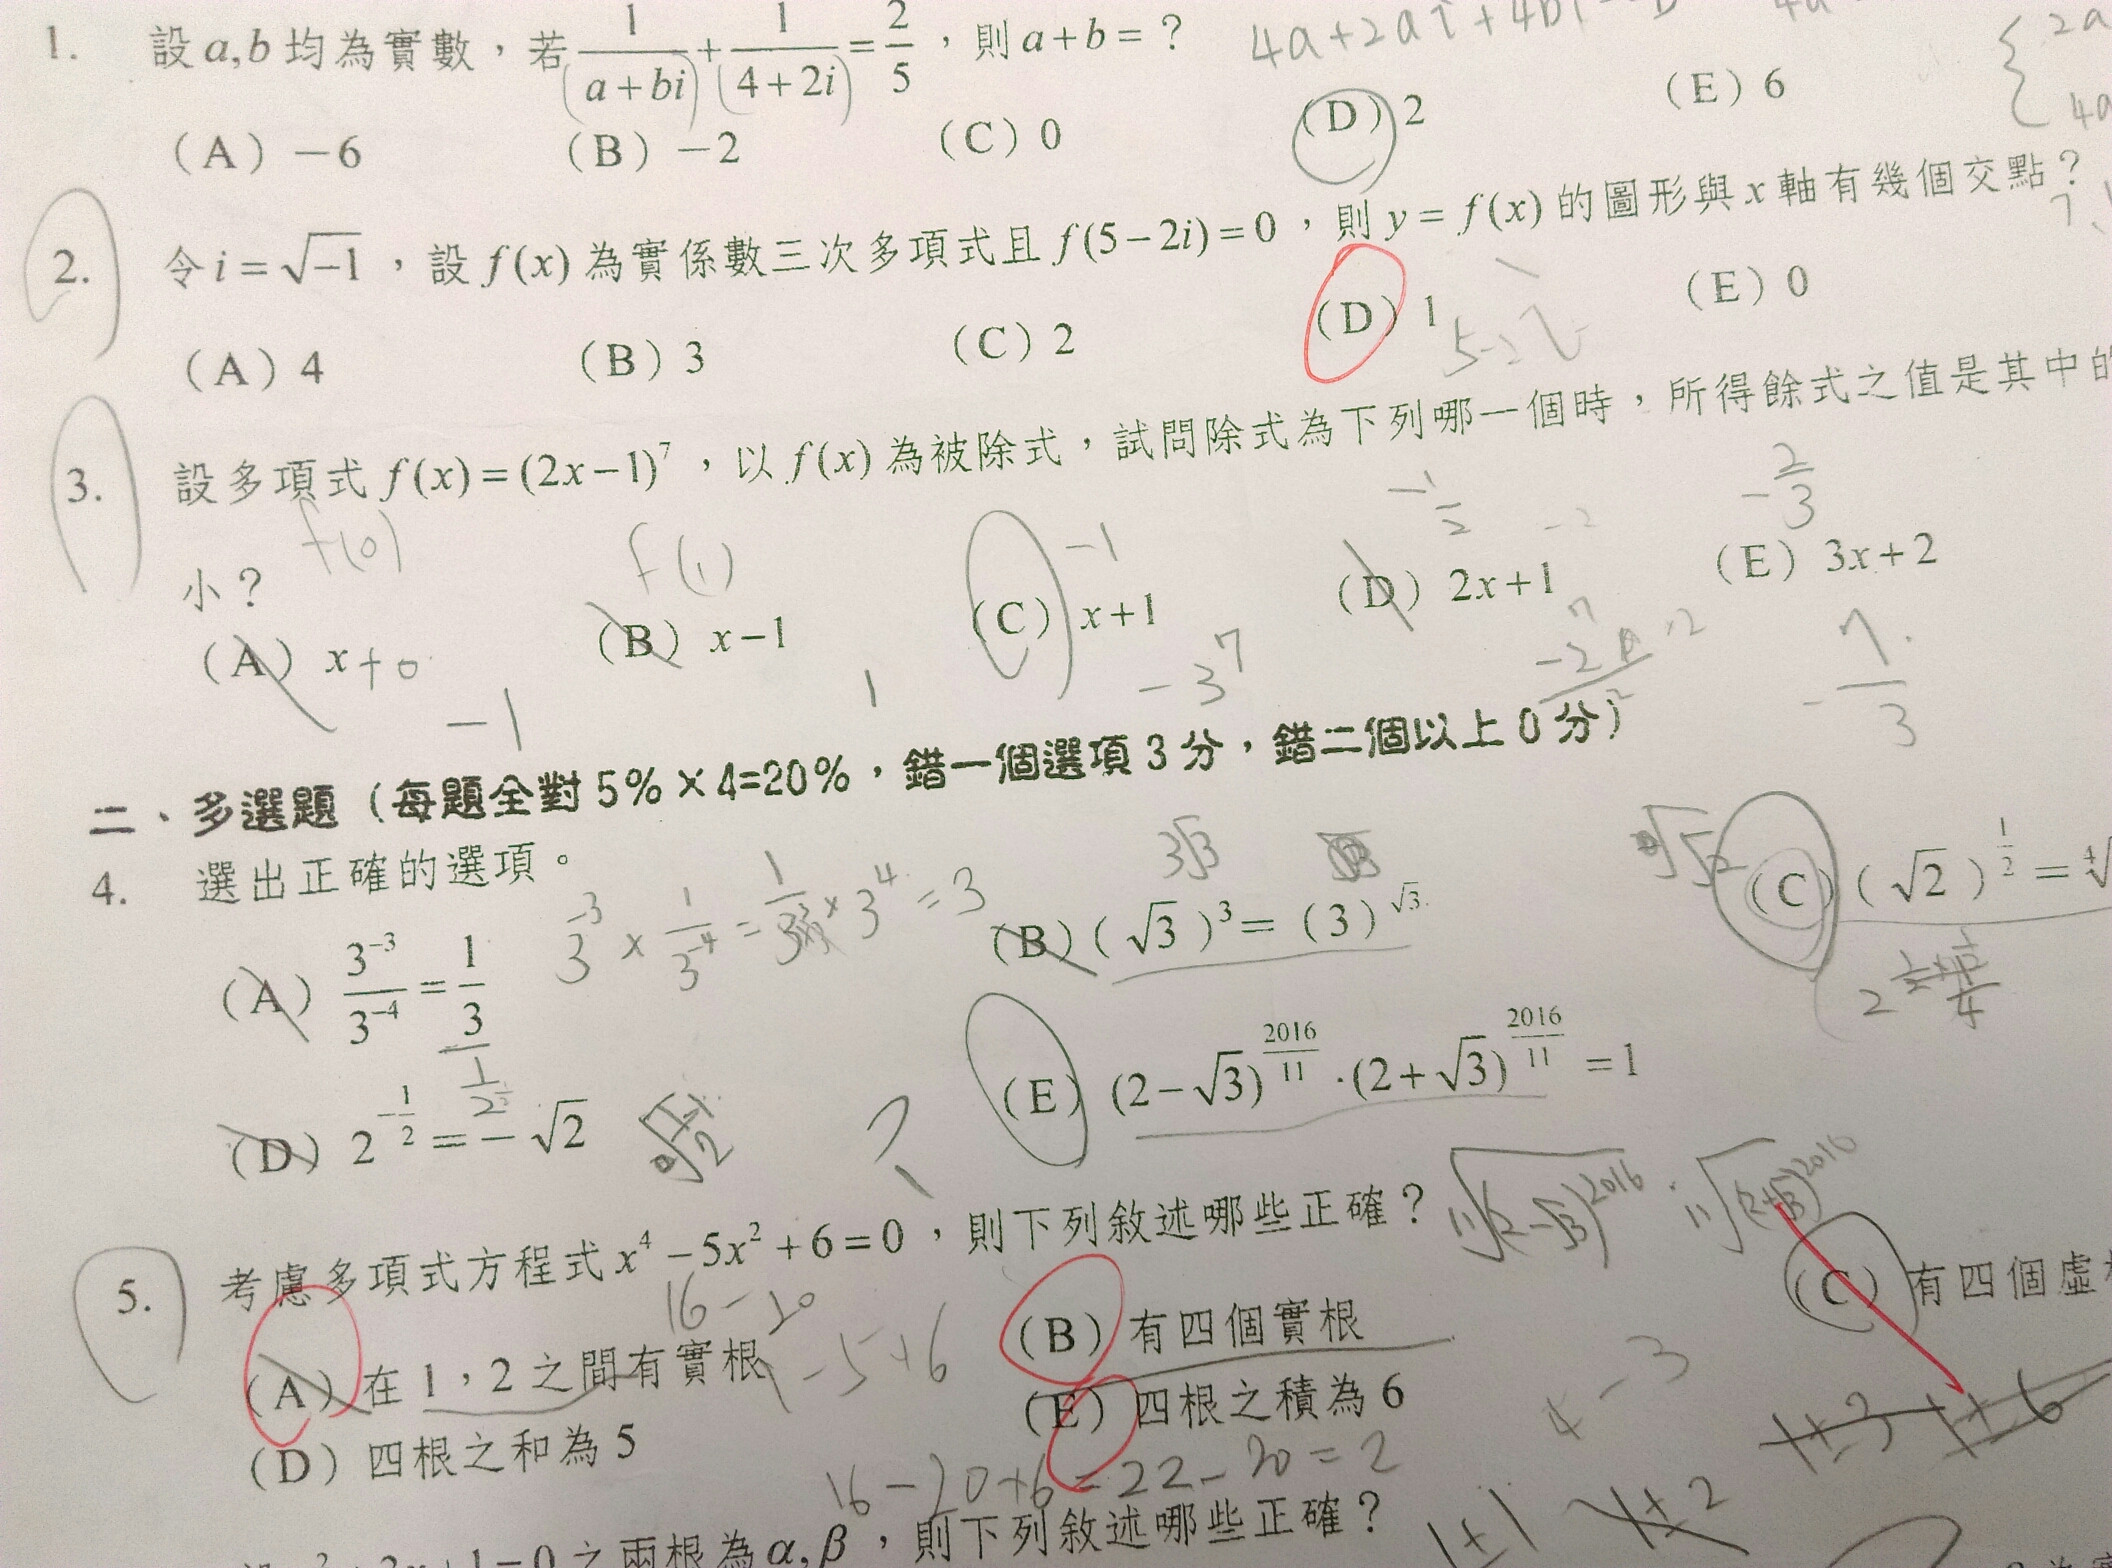 1. 設a,b均為實數，若 1/(a+bi) + 1/(4+2i) = 2/5，則a+b=？
4a+2ai+4bi
(A) −6 (B) −2 (C) 0 (D) 2 (E) 6
2. 令i=√−1，設f(x)為實係數三次多項式且f(5−2i)=0，則y=f(x)的圖形與x軸有幾個交點？
(A) 4 (B) 3 (C) 2 (D) 1 (E) 0
5-2i
3. 設多項式f(x)=(2x−1)⁷，以f(x)為被除式，試問除式為下列哪一個時，所得餘式之值是其中的
小？
f(0) f(1) -1 -1/2 -2/3
(A) x+0 (B) x−1 (C) x+1 (D) 2x+1 (E) 3x+2
-1 1 -3⁷
二、多選題（每題全對5%×4=20%，錯一個選項3分，錯二個以上0分）
4. 選出正確的選項。
3⁻³ × 1/3⁻⁴ = 1/3³ × 3⁴ = 3
3√3
(A) 3⁻³/3⁻⁴ = 1/3 (B) (√3)³ = (3)^√3 (C) (√2)^(1/2) = ⁴√
(D) 2^(−1/2) = −√2 (E) (2−√3)^(2016/11)·(2+√3)^(2016/11) = 1
?
¹¹√(2-√3)²⁰¹⁶ · ¹¹√(2+√3)²⁰¹⁶
5. 考慮多項式方程式x⁴−5x²+6=0，則下列敘述哪些正確？
16-20
(A) 在1，2之間有實根 (B) 有四個實根 (C) 有四個虛
1-5+6
(D) 四根之和為5 (E) 四根之積為6
4-3
16-20+6=22-20=2
之兩根為α,β，則下列敘述哪些正確？